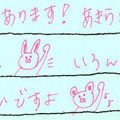 あります! あきら
いろん
ひですよ